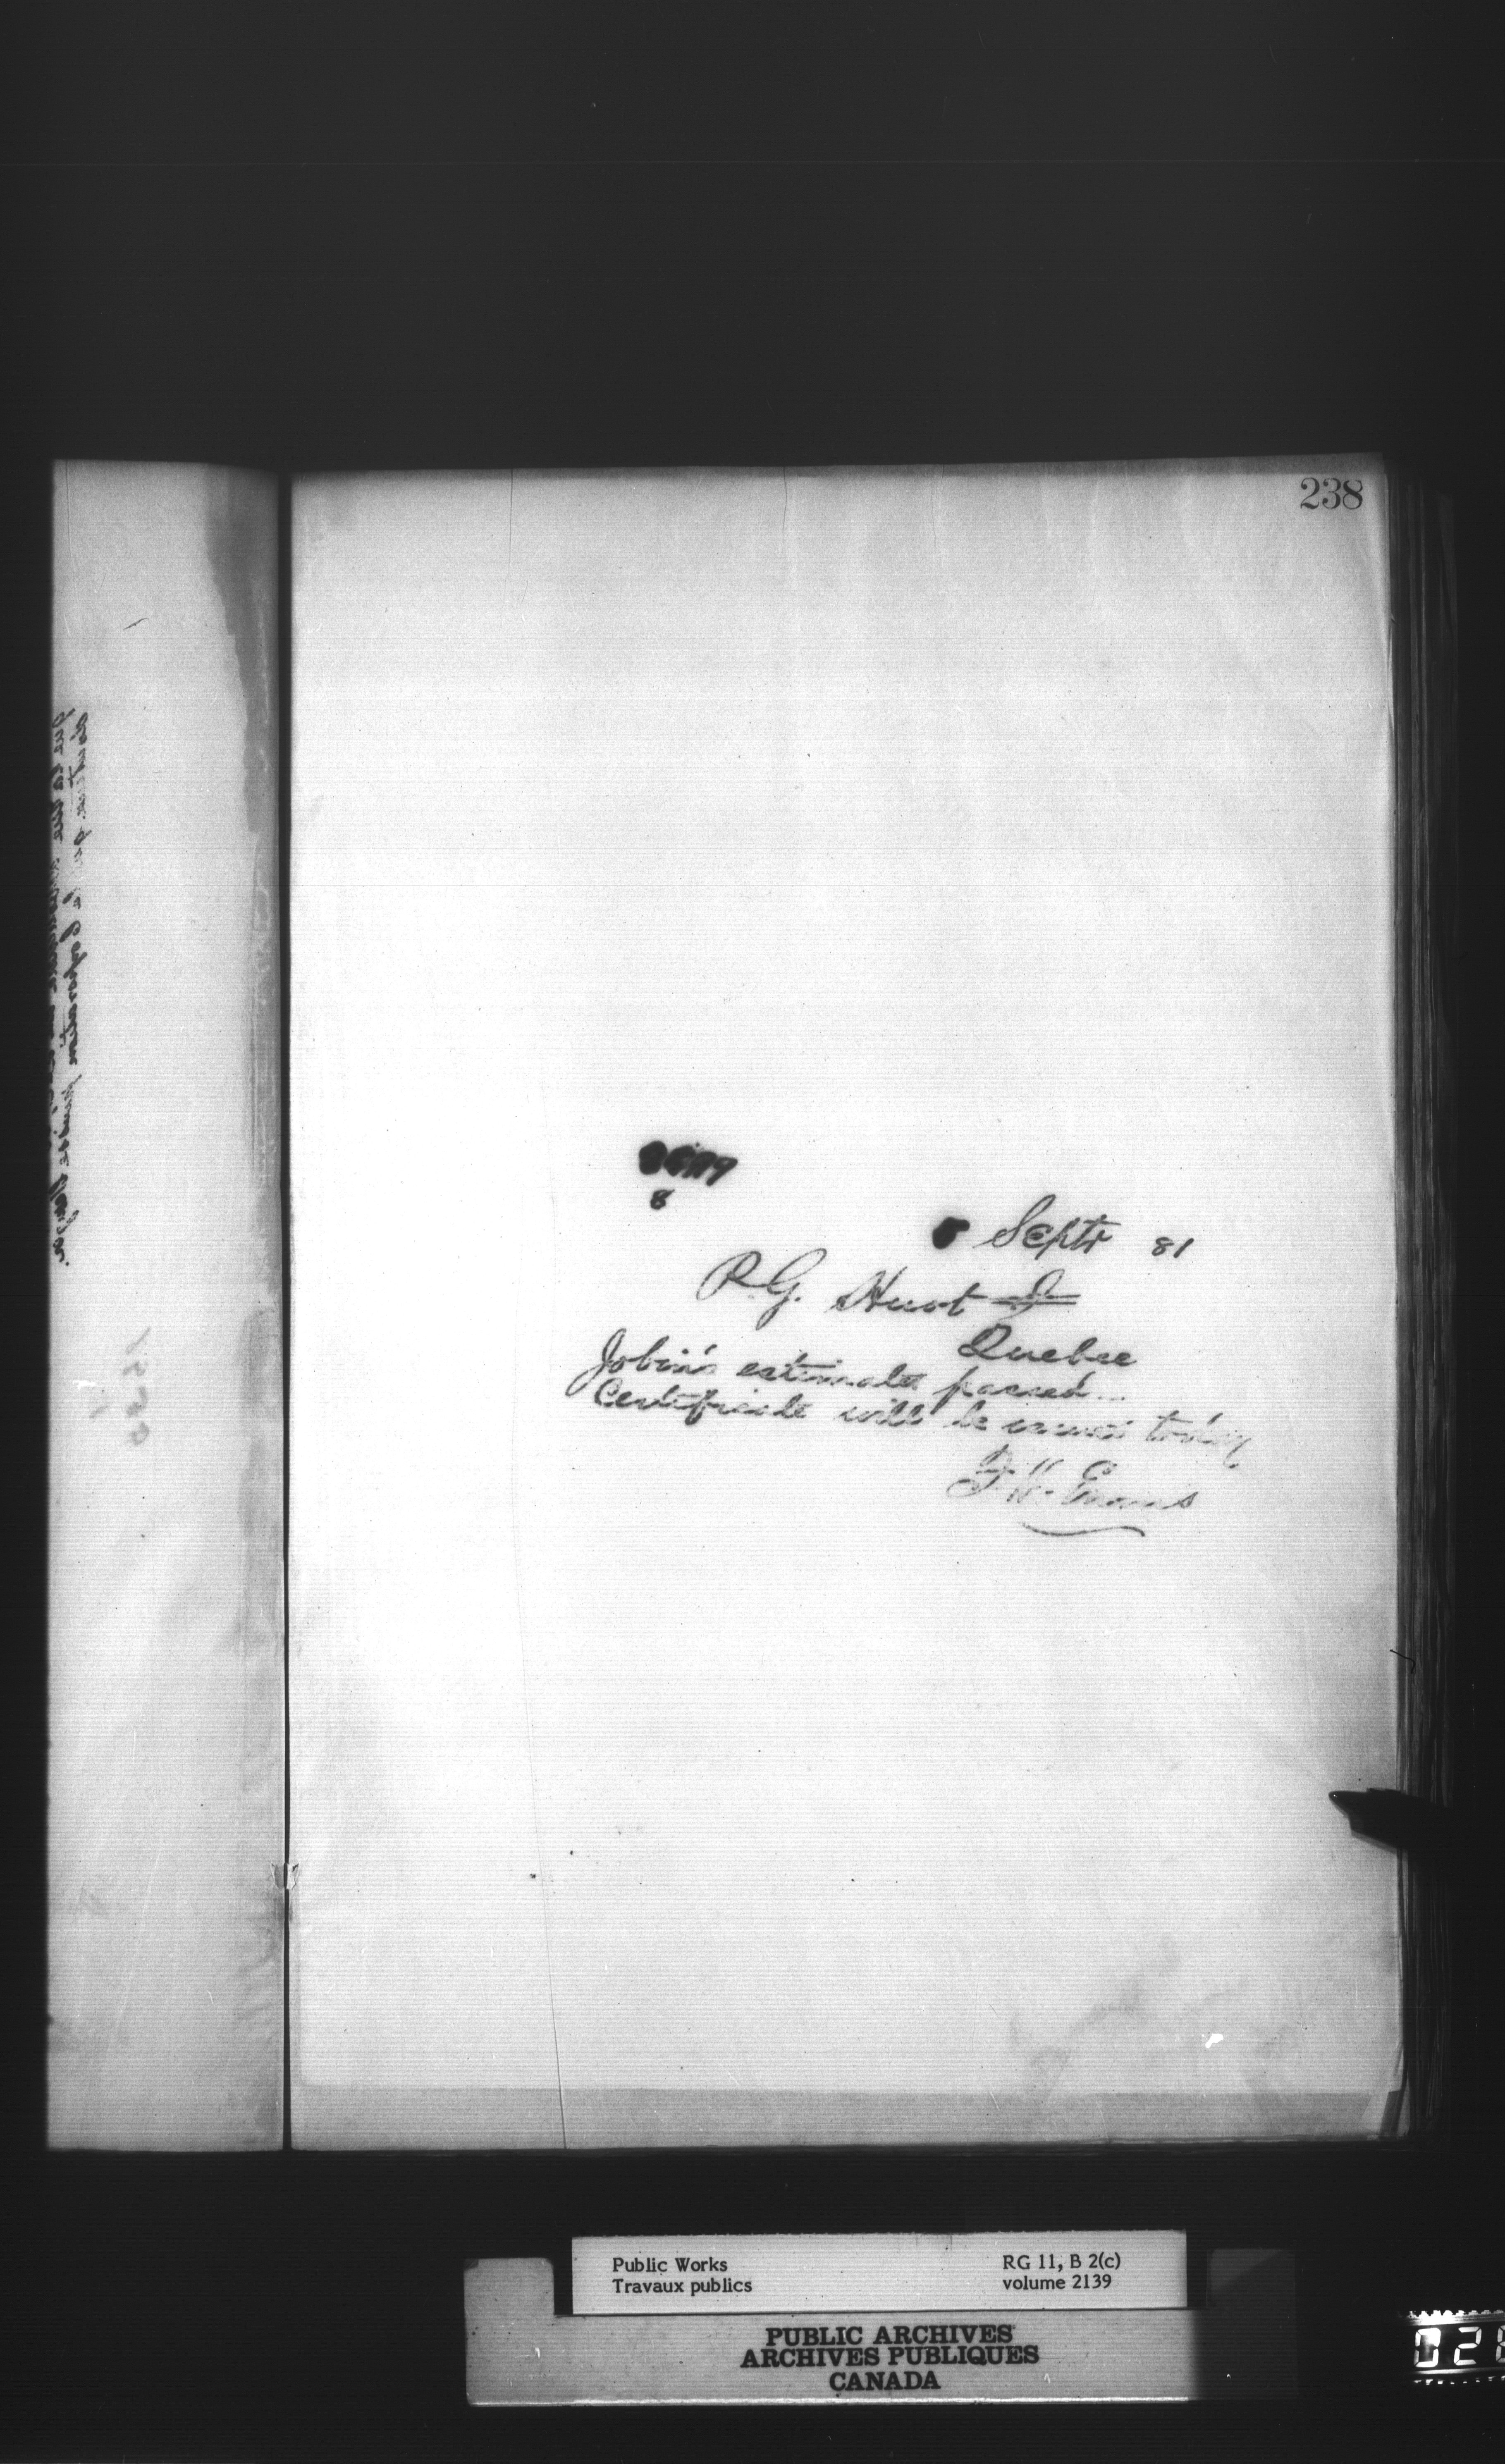 238
8
Septr 81
P.G. Huot
Quebec
Jobin's estimate passed
Certificate will be issued today
F.H. Ennis
Public Works
Travaux publics
RG 11, B 2(c)
volume 2139
PUBLIC ARCHIVES
ARCHIVES PUBLIQUES
CANADA